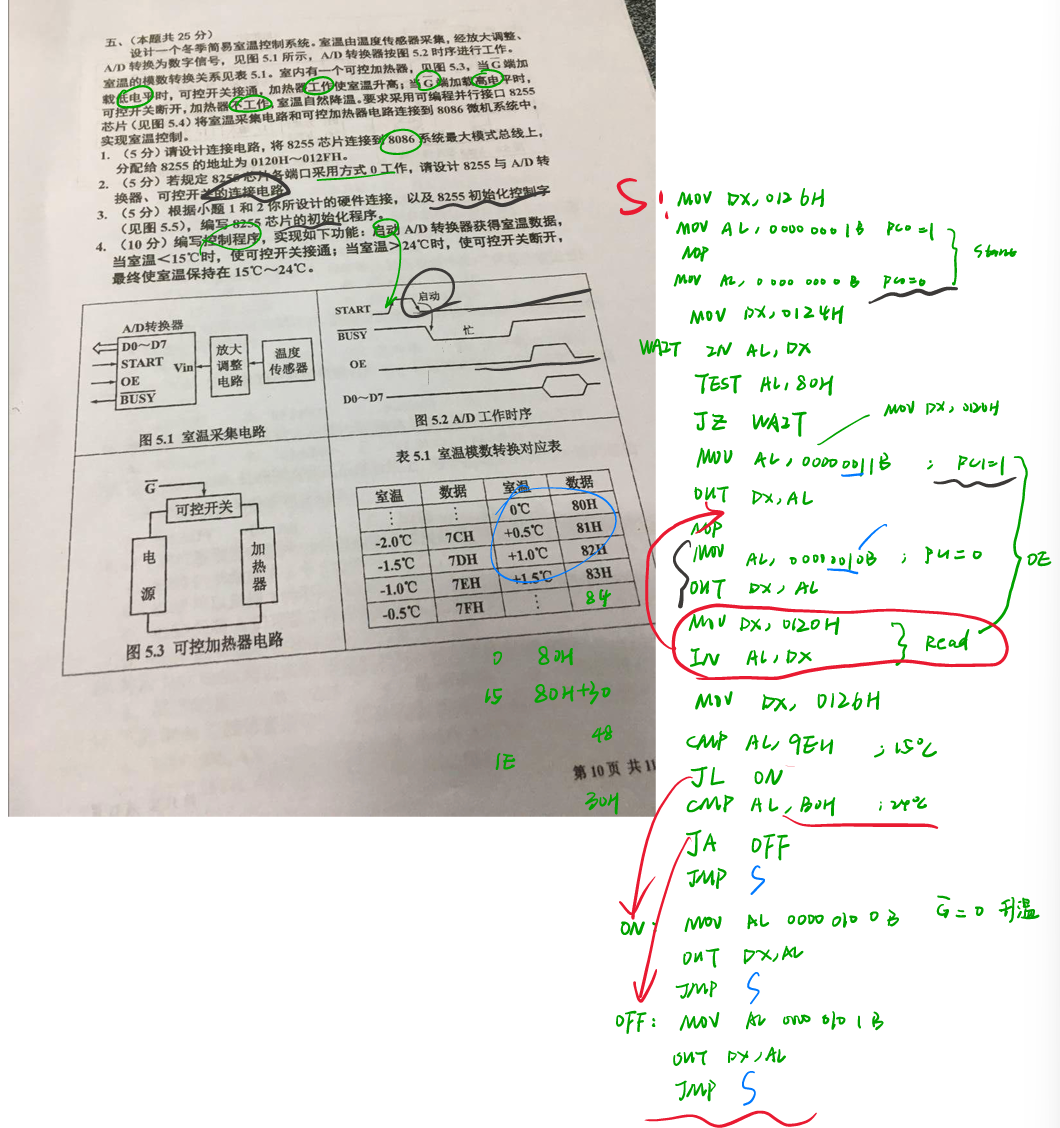 五、（本题共 25 分）
设计一个冬季简易室温控制系统。室温由温度传感器采集，经放大调整、
A/D 转换为数字信号，见图 5.1 所示，A/D 转换器按图 5.2 时序进行工作。
室温的模数转换关系见表 5.1。室内有一个可控加热器，见图 5.3，当G̅端加
载低电平时，可控开关接通，加热器工作使室温升高；当G̅端加载高电平时，
可控开关断开，加热器不工作，室温自然降温。要求采用可编程并行接口 8255
芯片（见图 5.4）将室温采集电路和可控加热器电路连接到 8086 微机系统中，
实现室温控制。
1. （5 分）请设计连接电路，将 8255 芯片连接到 8086 系统最大模式总线上，
分配给 8255 的地址为 0120H～012FH。
2. （5 分）若规定 8255 芯片各端口采用方式 0 工作，请设计 8255 与 A/D 转
换器、可控开关的连接电路
3. （5 分）根据小题 1 和 2 你所设计的硬件连接，以及 8255 初始化控制字
（见图 5.5），编写 8255 芯片的初始化程序。
4. （10 分）编写控制程序，实现如下功能：启动 A/D 转换器获得室温数据，
当室温<15℃时，使可控开关接通；当室温>24℃时，使可控开关断开，
最终使室温保持在 15℃～24℃。
A/D转换器
D0～D7
START
OE
B̅U̅S̅Y̅
Vin
放大
调整
电路
温度
传感器
图 5.1 室温采集电路
START
启动
B̅U̅S̅Y̅
忙
OE
D0～D7
图 5.2 A/D 工作时序
G̅
可控开关
电
源
加
热
器
图 5.3 可控加热器电路
表 5.1 室温模数转换对应表
室温 数据 室温 数据
⋮ ⋮ 0℃ 80H
-2.0℃ 7CH +0.5℃ 81H
-1.5℃ 7DH +1.0℃ 82H
-1.0℃ 7EH +1.5℃ 83H
-0.5℃ 7FH ⋮ 84
0 80H
15 80H+30
48
1E
30H
第 10 页 共 11
S:
MOV DX, 0126H
MOV AL, 0000 000 1B PC0=1
NOP
MOV AL, 0000 000 0 B PC0=0
MOV DX, 0124H
WAIT IN AL, DX
TEST AL, 80H
JZ WAIT
MOV DX, 0126H
MOV AL, 0000 0011B ; PC1=1
OUT DX, AL
NOP
MOV AL, 0000 0010B ; PC1=0
OUT DX, AL
OE
MOV DX, 0120H
IN AL, DX
Read
MOV DX, 0126H
CMP AL, 9EH ; 15℃
JL ON
CMP AL, B0H ; 24℃
JA OFF
JMP S
ON: MOV AL 0000 010 0 B G̅=0 升温
OUT DX, AL
JMP S
OFF: MOV AL 0000 010 1 B
OUT DX, AL
JMP S